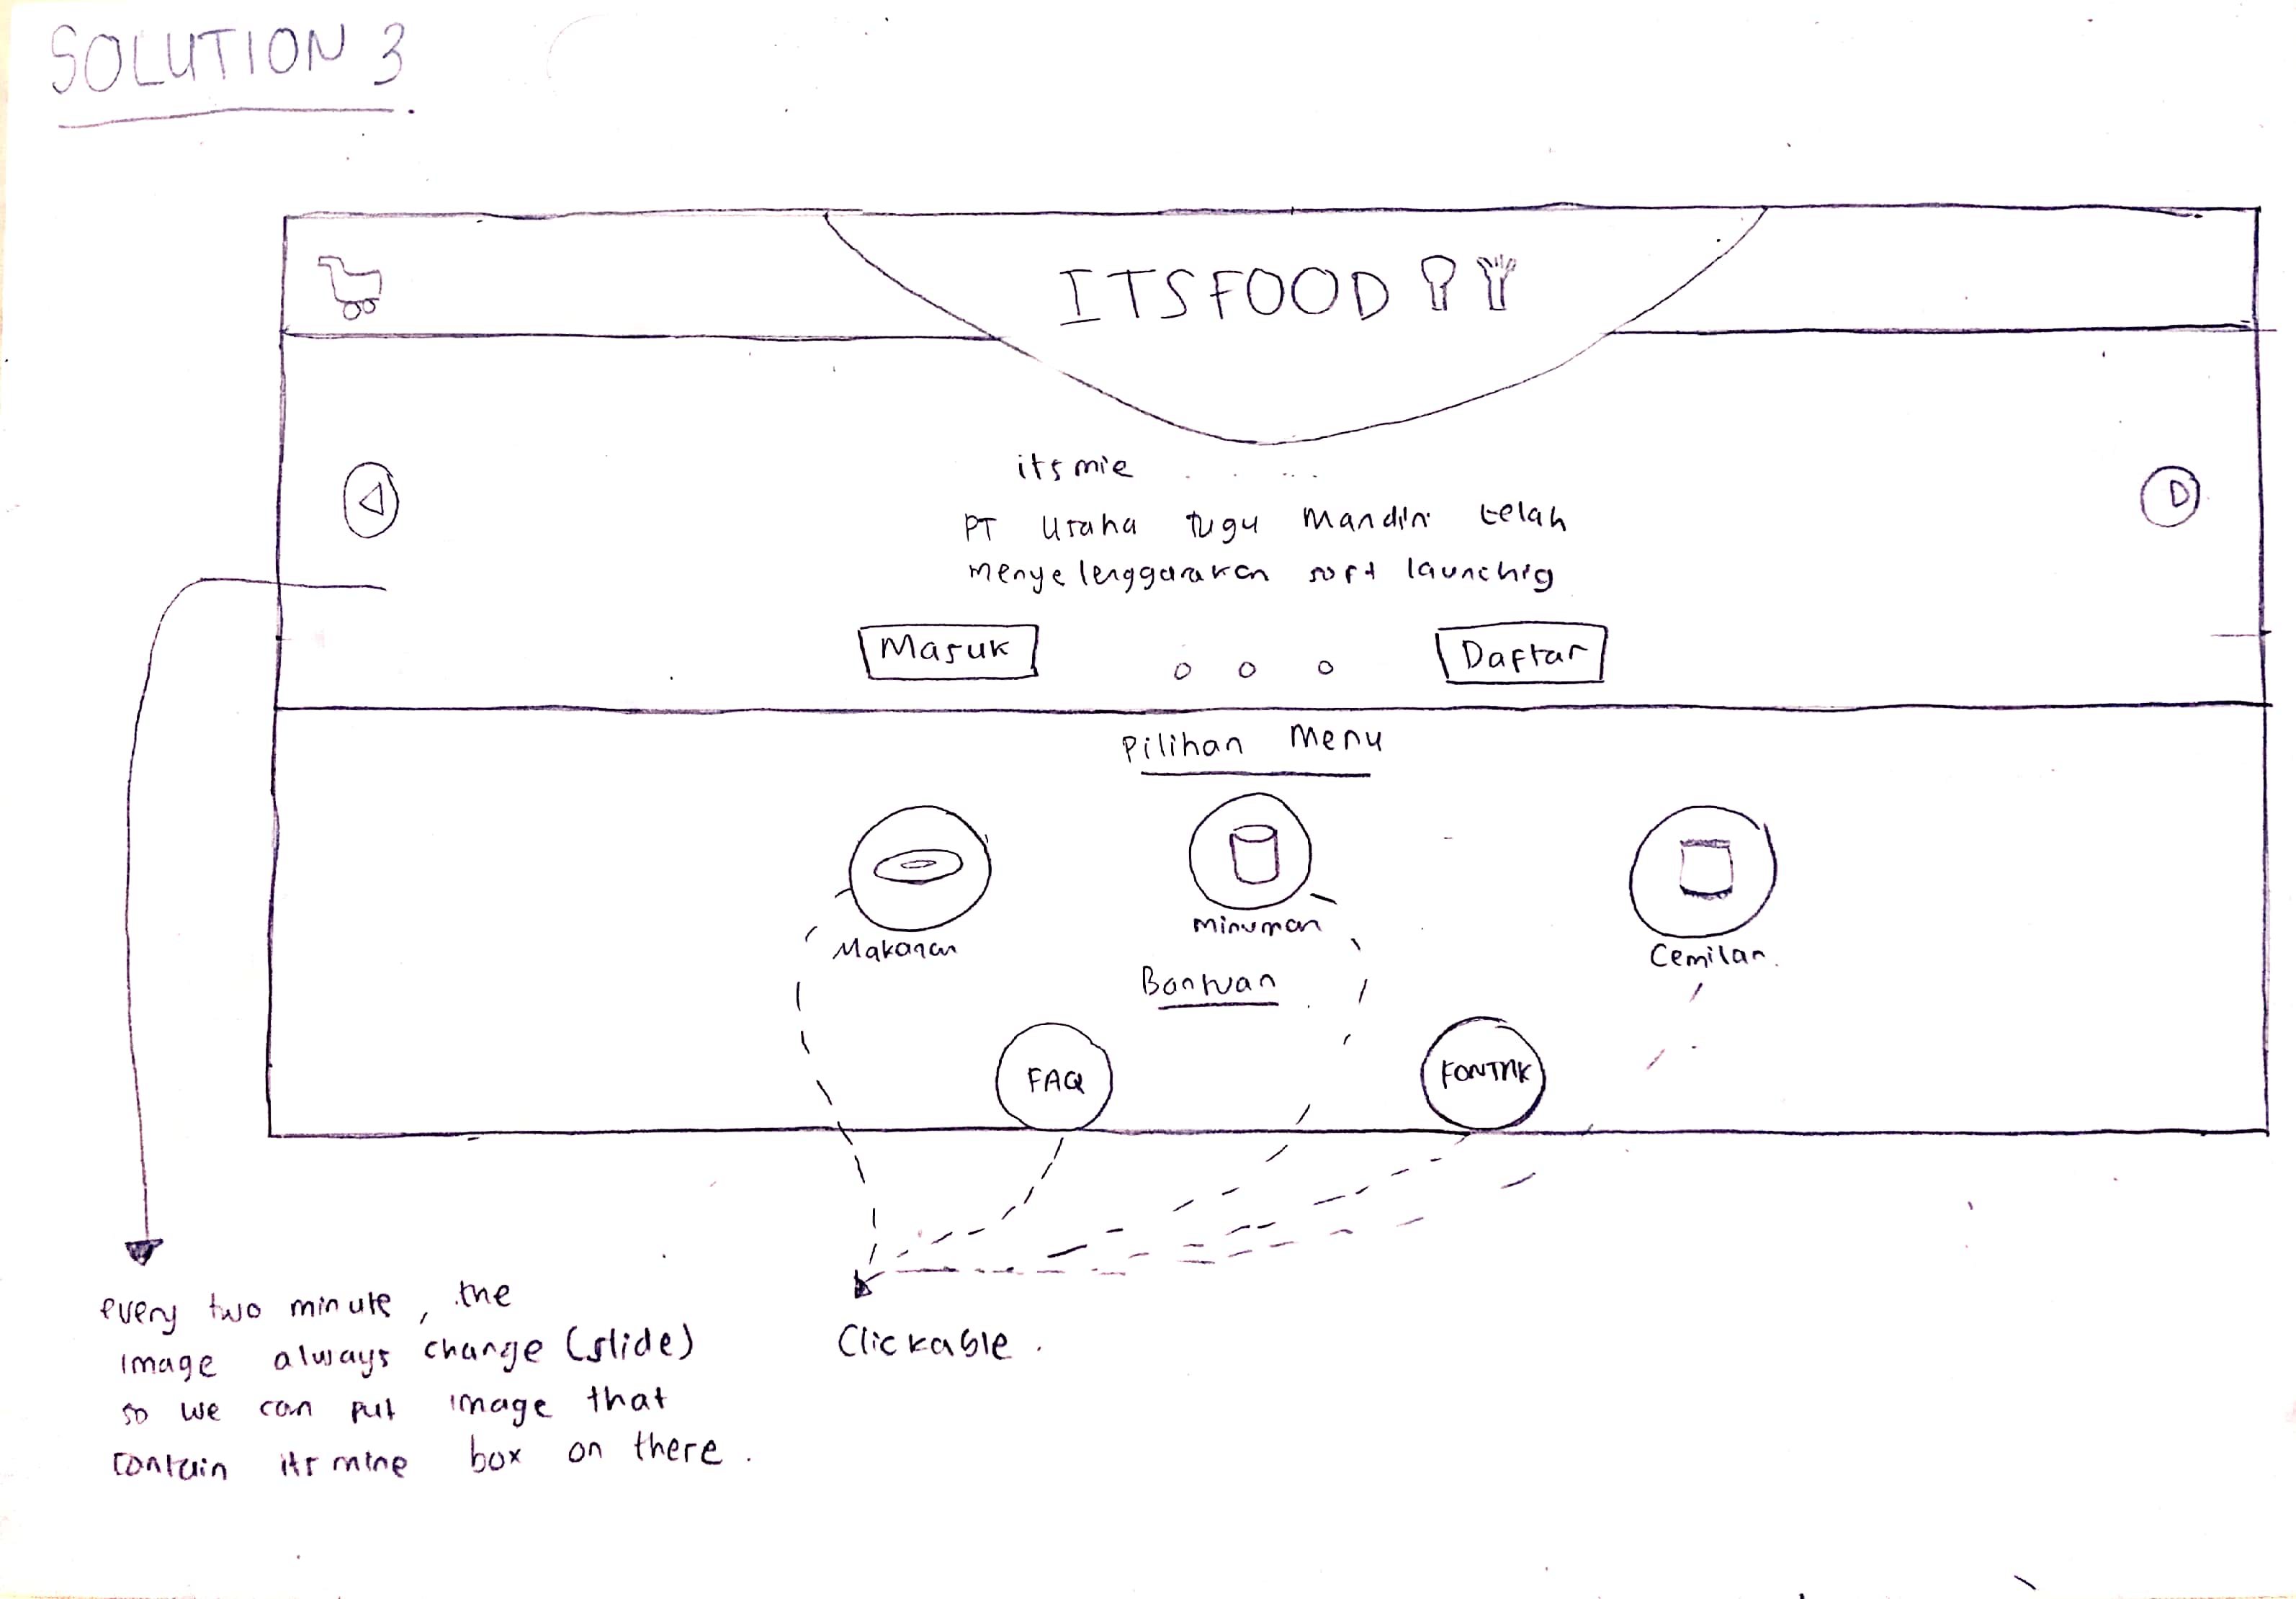 SOLUTION 3
ITSFOOD
itsmie . . ...
PT Usaha tugu Mandiri telah
menyelenggarakan soft launchig
Masuk
Daftar
Pilihan Menu
Makanan
Minuman
Cemilan.
Bantuan
FAQ
KONTAK
every two minute, the
image always change (slide)
so we can put image that
contain its mine box on there.
Clickable.